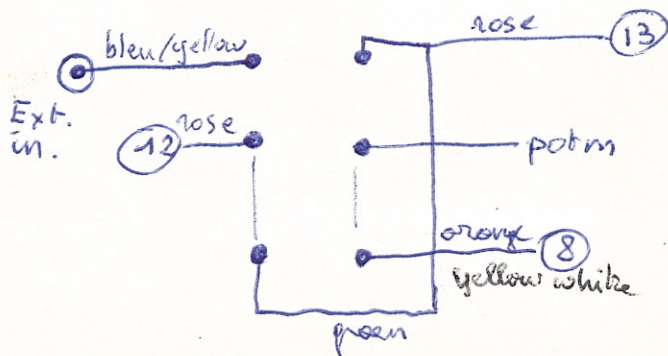 bleu/yellow
rose
13
Ext.
in.
12
rose
potm
orange
8
yellow white
groen